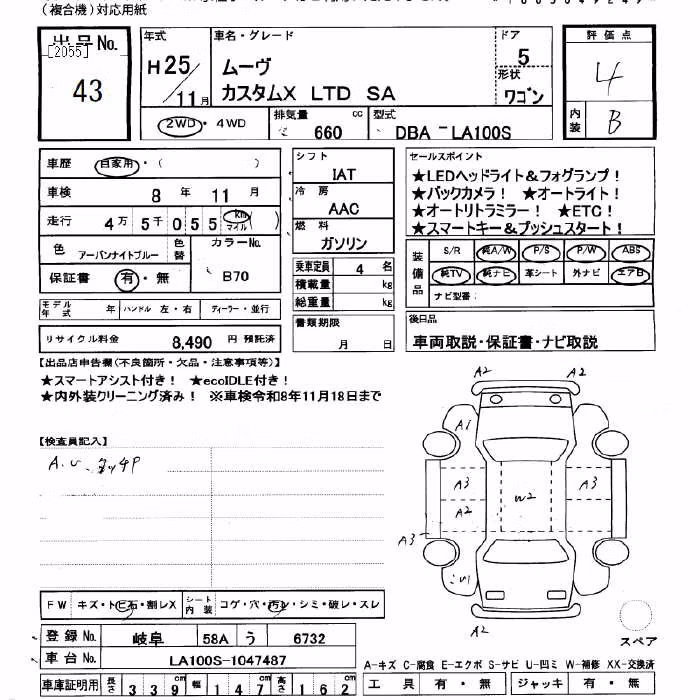 (複合機)対応用紙
出品No. [2055] 43
年式 H25/11月
車名・グレード ムーヴ カスタムX LTD SA
ドア 5 形状 ワゴン
評価点 4 内装 B
2WD・4WD 排気量 660 cc 型式 DBA-LA100S
車歴 自家用・( )
車検 8年 11月
走行 4万5千055 km マイル ( )
色 アーバンナイトブルー 色替 カラーNo. B70
保証書 有・無
モデル年式 年 ハンドル 左・右 ディーラー・並行
リサイクル料金 8,490 円 預託済
シフト IAT
冷房 AAC
燃料 ガソリン
乗車定員 4 名
積載量 kg
総重量 kg
書類期限 月 日
セールスポイント
★LEDヘッドライト&フォグランプ!
★バックカメラ! ★オートライト!
★オートリトラミラー! ★ETC!
★スマートキー&プッシュスタート!
装備品 S/R 純A/W P/S P/W ABS
純TV 純ナビ 革シート 外ナビ エアB
ナビ型番:
後日品
車両取説・保証書・ナビ取説
【出品店申告欄(不良箇所・欠品・注意事項等)】
★スマートアシスト付き! ★ecoIDLE付き!
★内外装クリーニング済み! ※車検令和8年11月18日まで
【検査員記入】
A.U.
A2 A2
A1
A3 A3
A2 W2
A3
A2
スペア
FW キズ・トビ石・割レX シート内装 コゲ・穴・汚レ・シミ・破レ・スレ
登録No. 岐阜 58A う 6732
車台No. LA100S-1047487
車庫証明用 長さ 339 cm 幅 147 cm 高さ 162 cm
A-キズ C-腐食 E-エクボ S-サビ U-凹ミ W-補修 XX-交換済
工具 有・無 ジャッキ 有・無